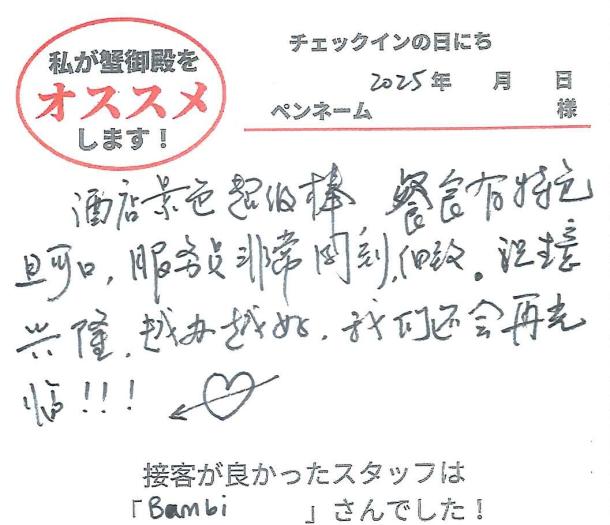 私が蟹御殿を
オススメ
します！
チェックインの日にち
2025年 月 日
ペンネーム 様
酒店景色超级棒 餐食有特色
且可口，服务员非常周到，细致。祝生意
兴隆，越办越好，我们还会再光
临！！！
接客が良かったスタッフは
「Bambi 」さんでした！